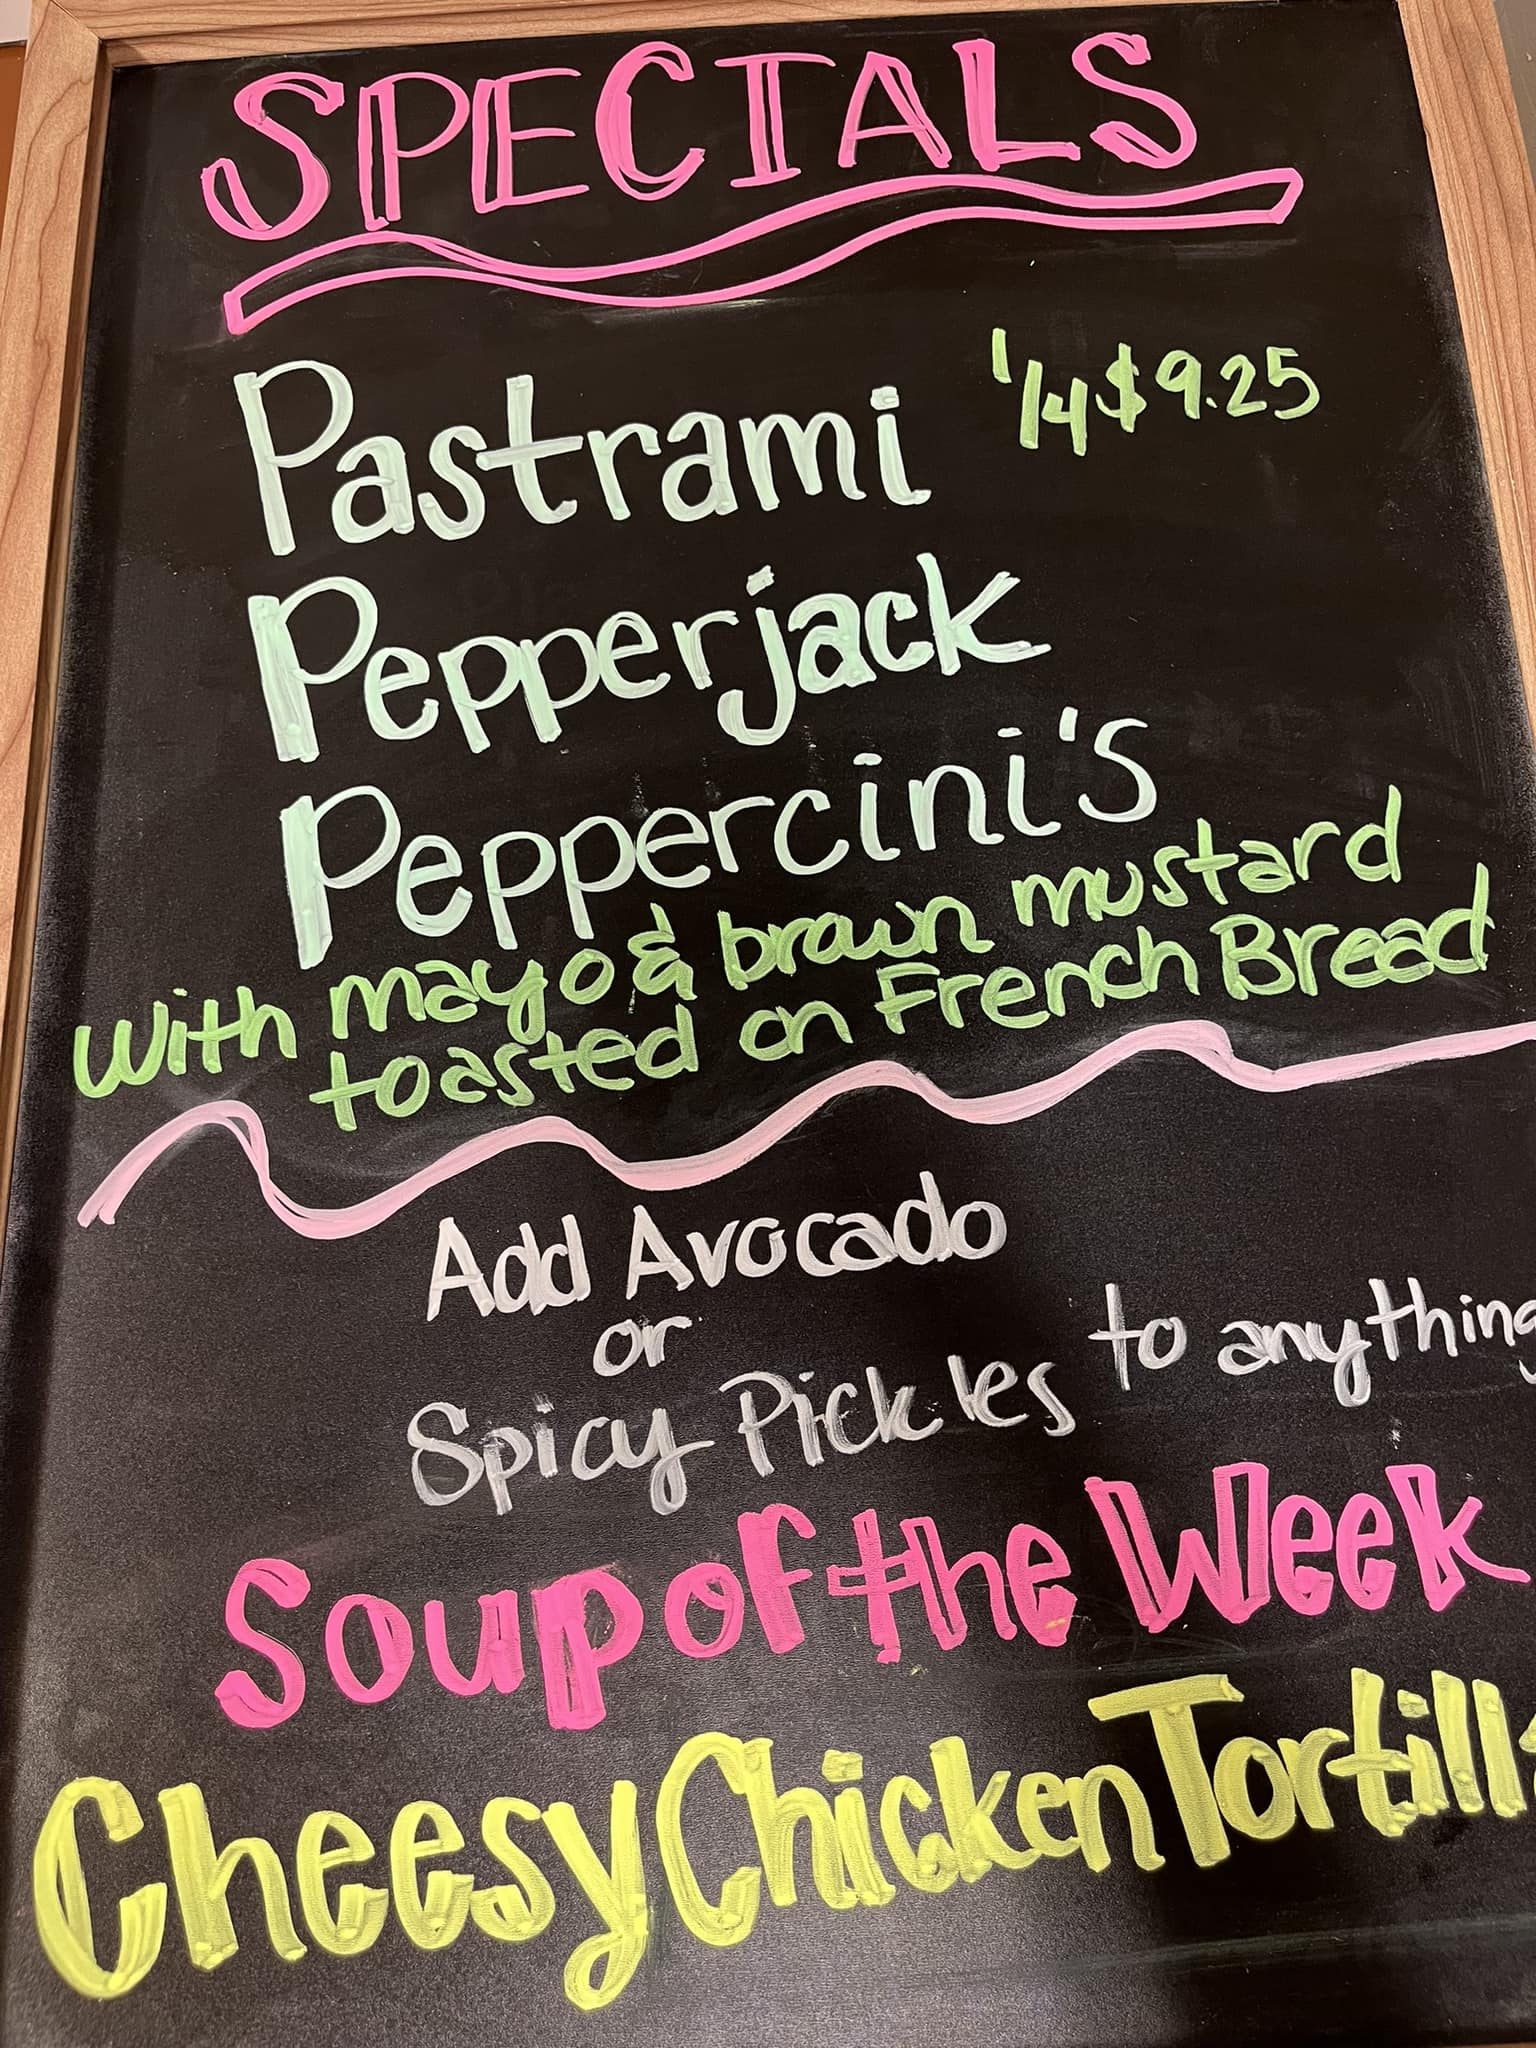 SPECIALS
Pastrami 1/4 $9.25
Pepperjack
Peppercini's
With mayo & brown mustard
toasted on French Bread
Add Avocado
or
Spicy Pickles to anything
Soup of the Week
Cheesy Chicken Tortilla